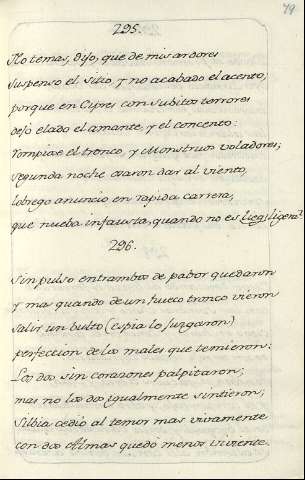 79
295.
No temas, dijo, que de mis ardores
suspenso el silvo, y no acabado el acento,
porque en Cypres con subitos torrores
dejò elado el amante, y el concento:
rompiose el tronco, y Monstruos voladores,
segunda noche osaron dar al viento,
lobrego anuncio en rapida carrera,
que nueba infausta, quando no es ligera?
296.
Sin pulso entrambos de pabor quedaron
y mas quando de un hueco tronco vieron
salir un bulto (espia lo juzgaron)
perfeccion de los males que temieron:
Los dos sin corazones palpitaron,
mas no los dos ygualmente sintieron,
Silbia cediò al temor mas vivamente
con dos Almas quedò menos viviente.